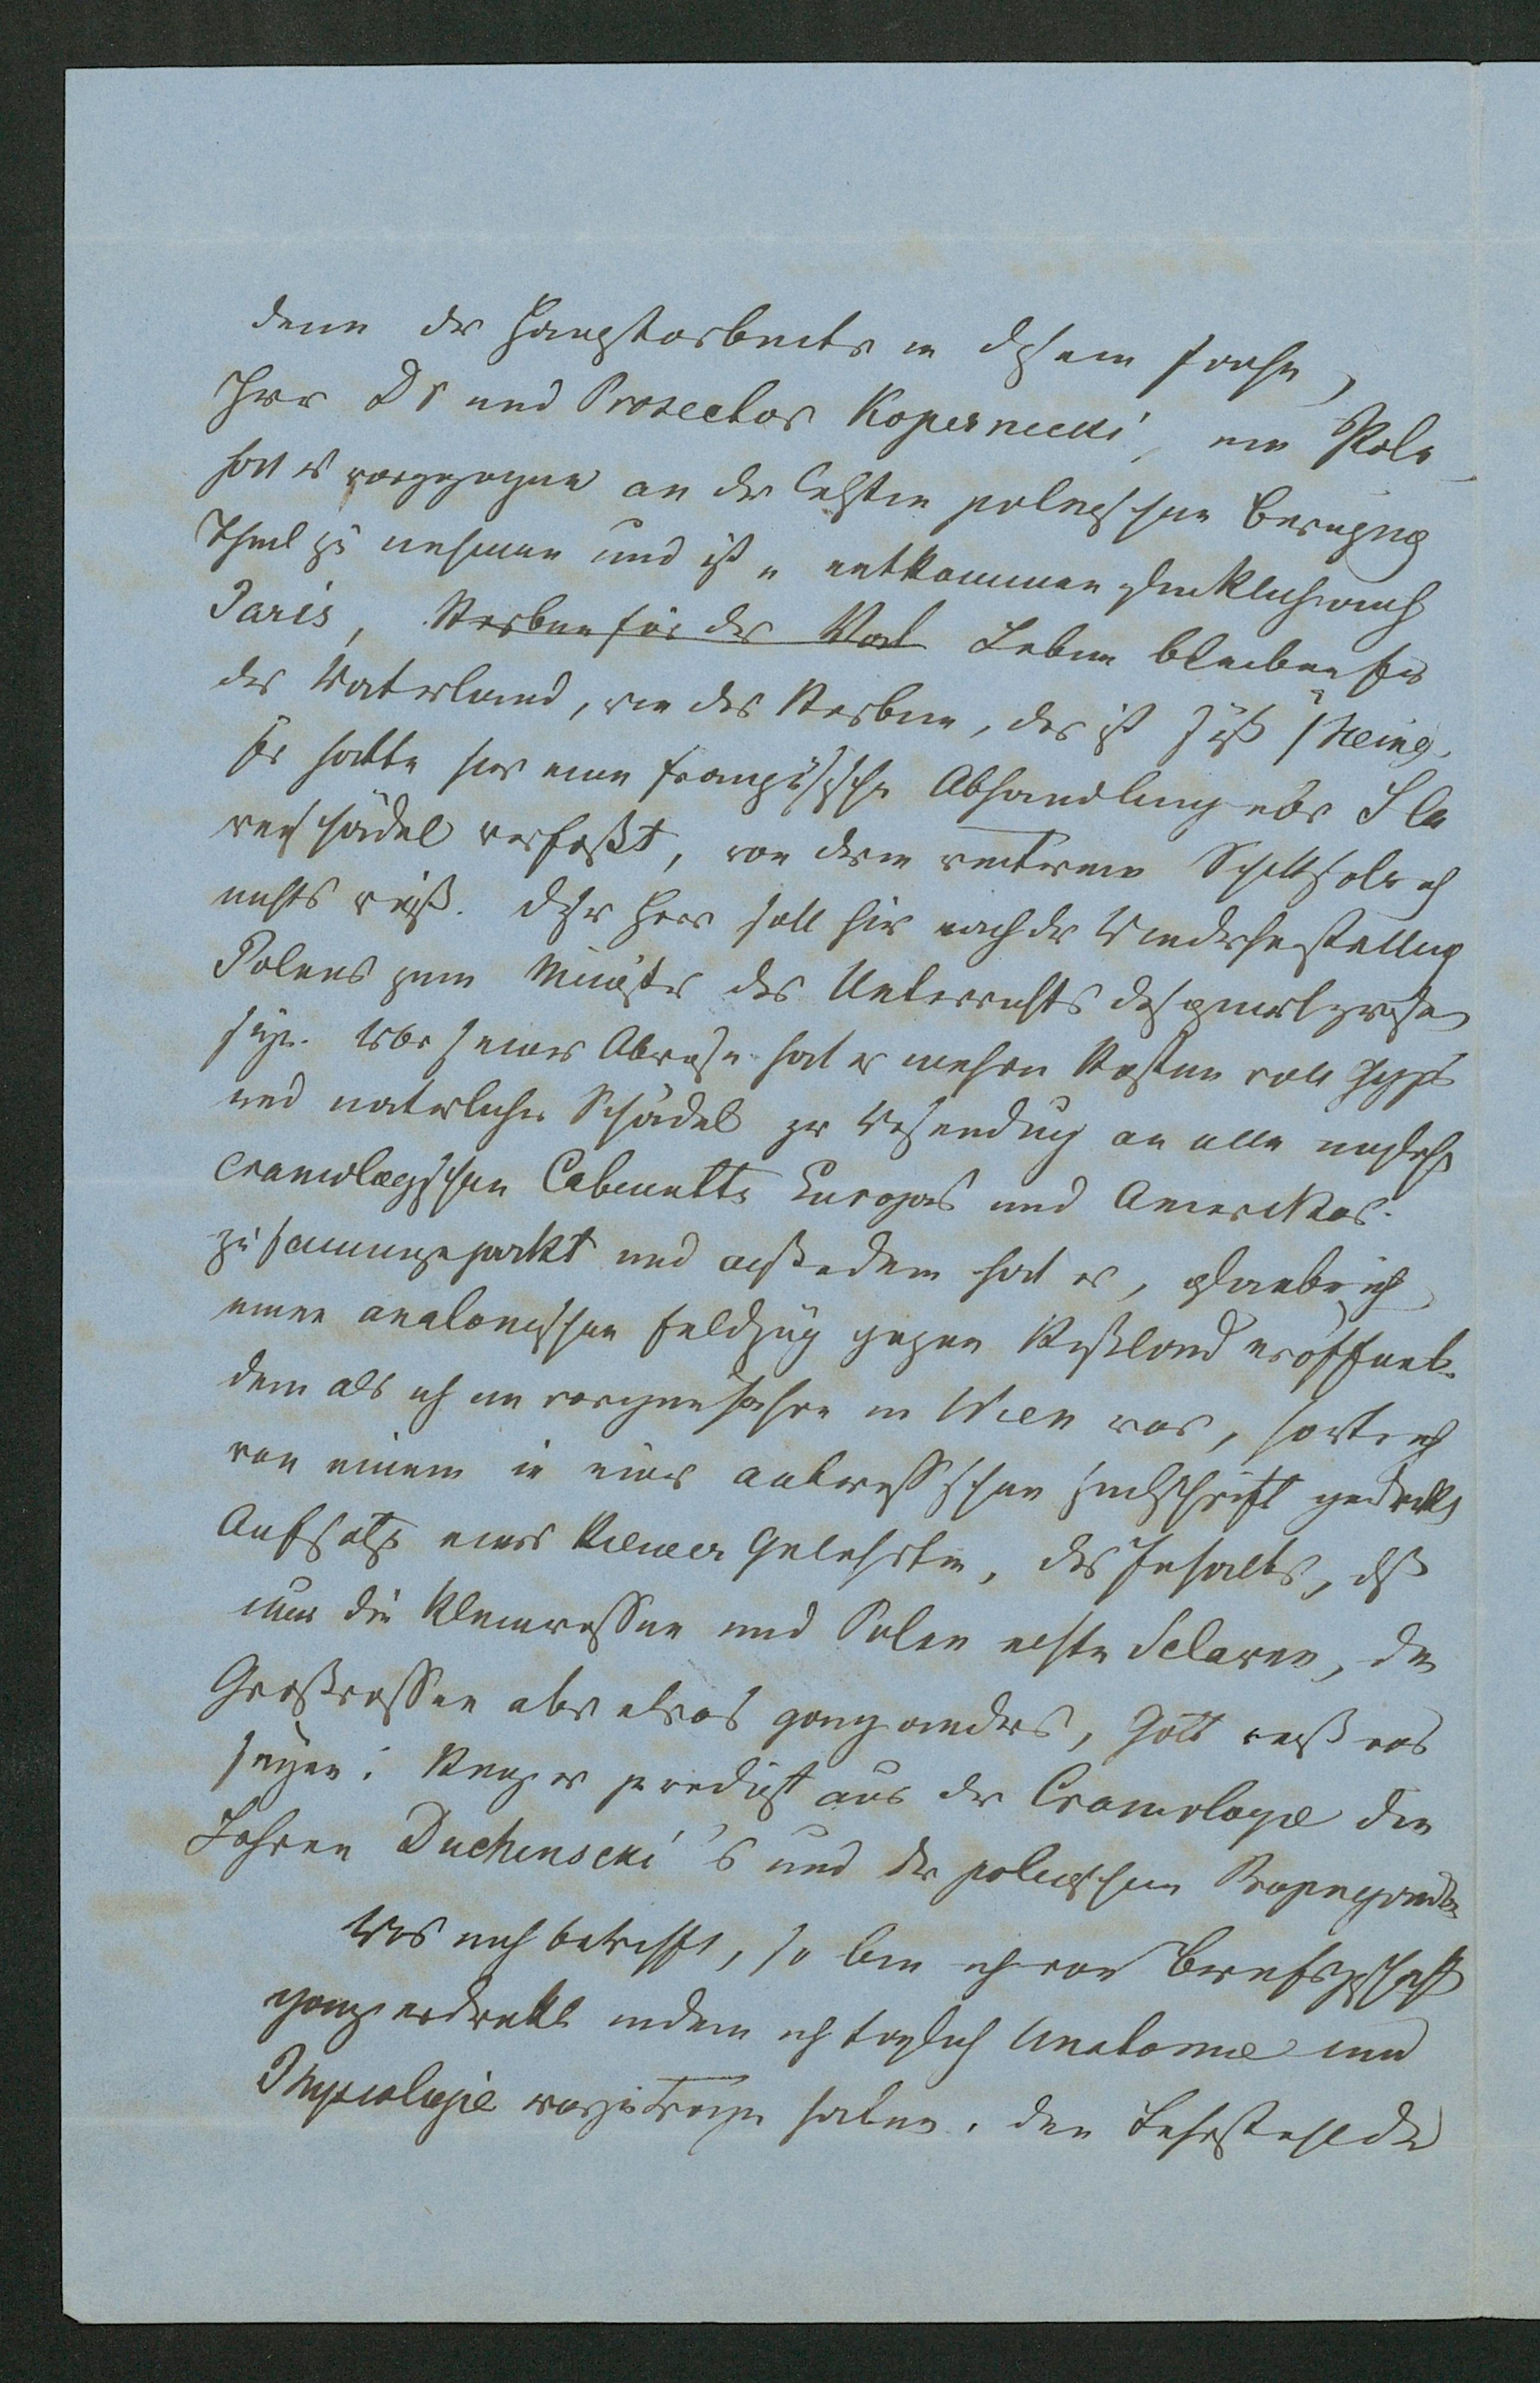 denn der Hauptarbeiter in diesem Fache,
Herr Dr und Prosector Kopernicki, ein Pole
hat es vorgezogen an der letzten polnischen Bewegung
Theil zu nehmen und ist entkommen glücklich nach
Paris, Sterben für das Vat Leben bleiben für
das Vaterland, wie das Sterben, das ist süß
Er hatte hier eine französische Abhandlung über Sla
venschädel verfaßt, von deren weiterem Schicksale ich
nichts weiß. Dieser Herr soll hier nach der Wiederherstellung
Polens zum Minister des Unterrichts designirt gewesen
seyn. Vor seiner Abreise hat er mehre Kasten voll Gyps
und natürlicher Schädel zur Versendung an alle möglichen
craniologischen Cabinette Europas und Amerikas
zusammengepackt und außerdem hat er, glaube ich
einen anatomischen Feldzug gegen Rußland eröffnet.
denn als ich im vorigen Jahre in Wien war, hörte ich
von einem in einer antirussischen Zeitschrift gedruckten
Aufsatz eines Kiewer Gelehrten, des Inhalts, daß
nur die Kleinrussen und Polen echte Sclaven, die
Großrussen aber etwas ganz anders, Gott weiß was
seyen. predigt aus der Craniologie die
Lehren Duchinscki's und der polnischen Propaganda
Was mich betrifft, so bin ich von Berufsgeschäften
ganz erdrückt indem ich täglich Anatomie und
Physiologie vorzutragen habe. Den Lehrstuhl der